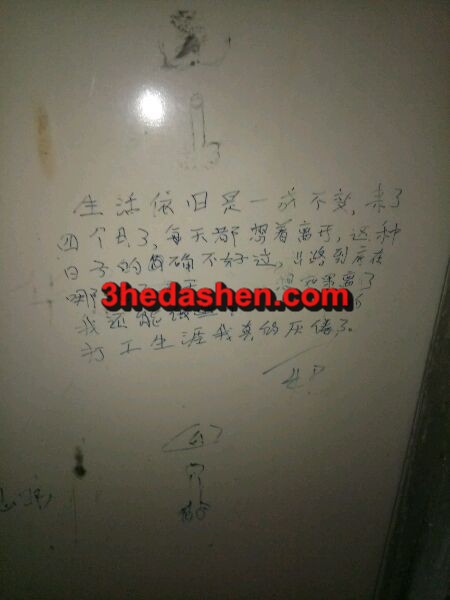 生活依旧是一成不变，来了
四个月了，每天都想着离开，这种
日子的的确不好过，出路到底在
哪
想如果离了
3hedashen.com
我还能
打工生涯我真的厌倦了。